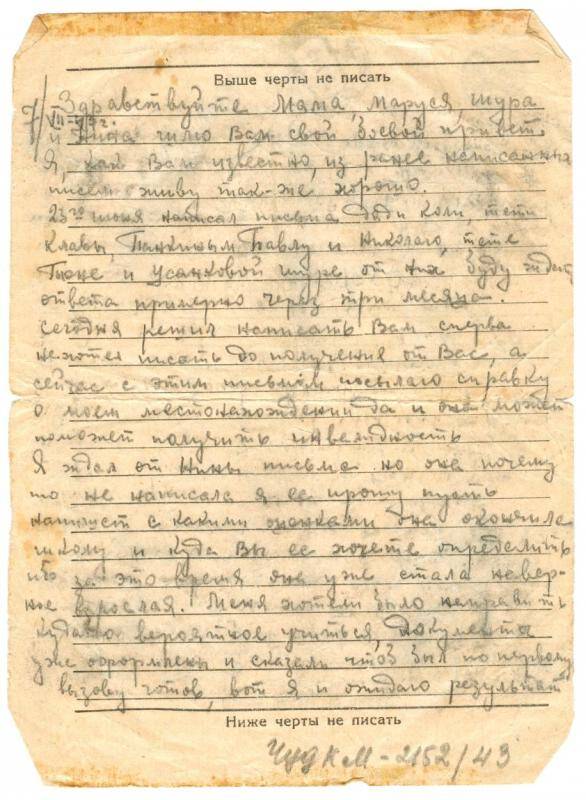 Выше черты не писать
7/VII-43г.
Здравствуйте Мама, Маруся, Шура
и Нина шлю Вам свой боевой привет.
Я, как Вам известно, из ранее написанных
писем живу так-же хорошо.
23го июня написал письма дяди Коли, тети
Клавы, Панкиным Павлу и Николаю, тете
Тюне и Усанковой Шуре от них буду ждать
ответа примерно через три месяца.
Сегодня решил написать Вам сперва
не хотел писать до получения от Вас, а
сейчас с этим письмом посылаю справку
о моем местонахождении да и она может
поможет получить инвалидность
Я ждал от Нины письма но она почему
то не написала я ее прошу пусть
напишет с какими оценками она окончила
школу и куда Вы ее хотете определить
за это время она уже стала навер-
ное взрослая. Меня хотели было направить
куда то вероятное учиться, документы
уже оформлены и сказали чтоб был по первому
вызову готов, вот я и ожидаю результат
Ниже черты не писать
ЧудКМ-2152/43